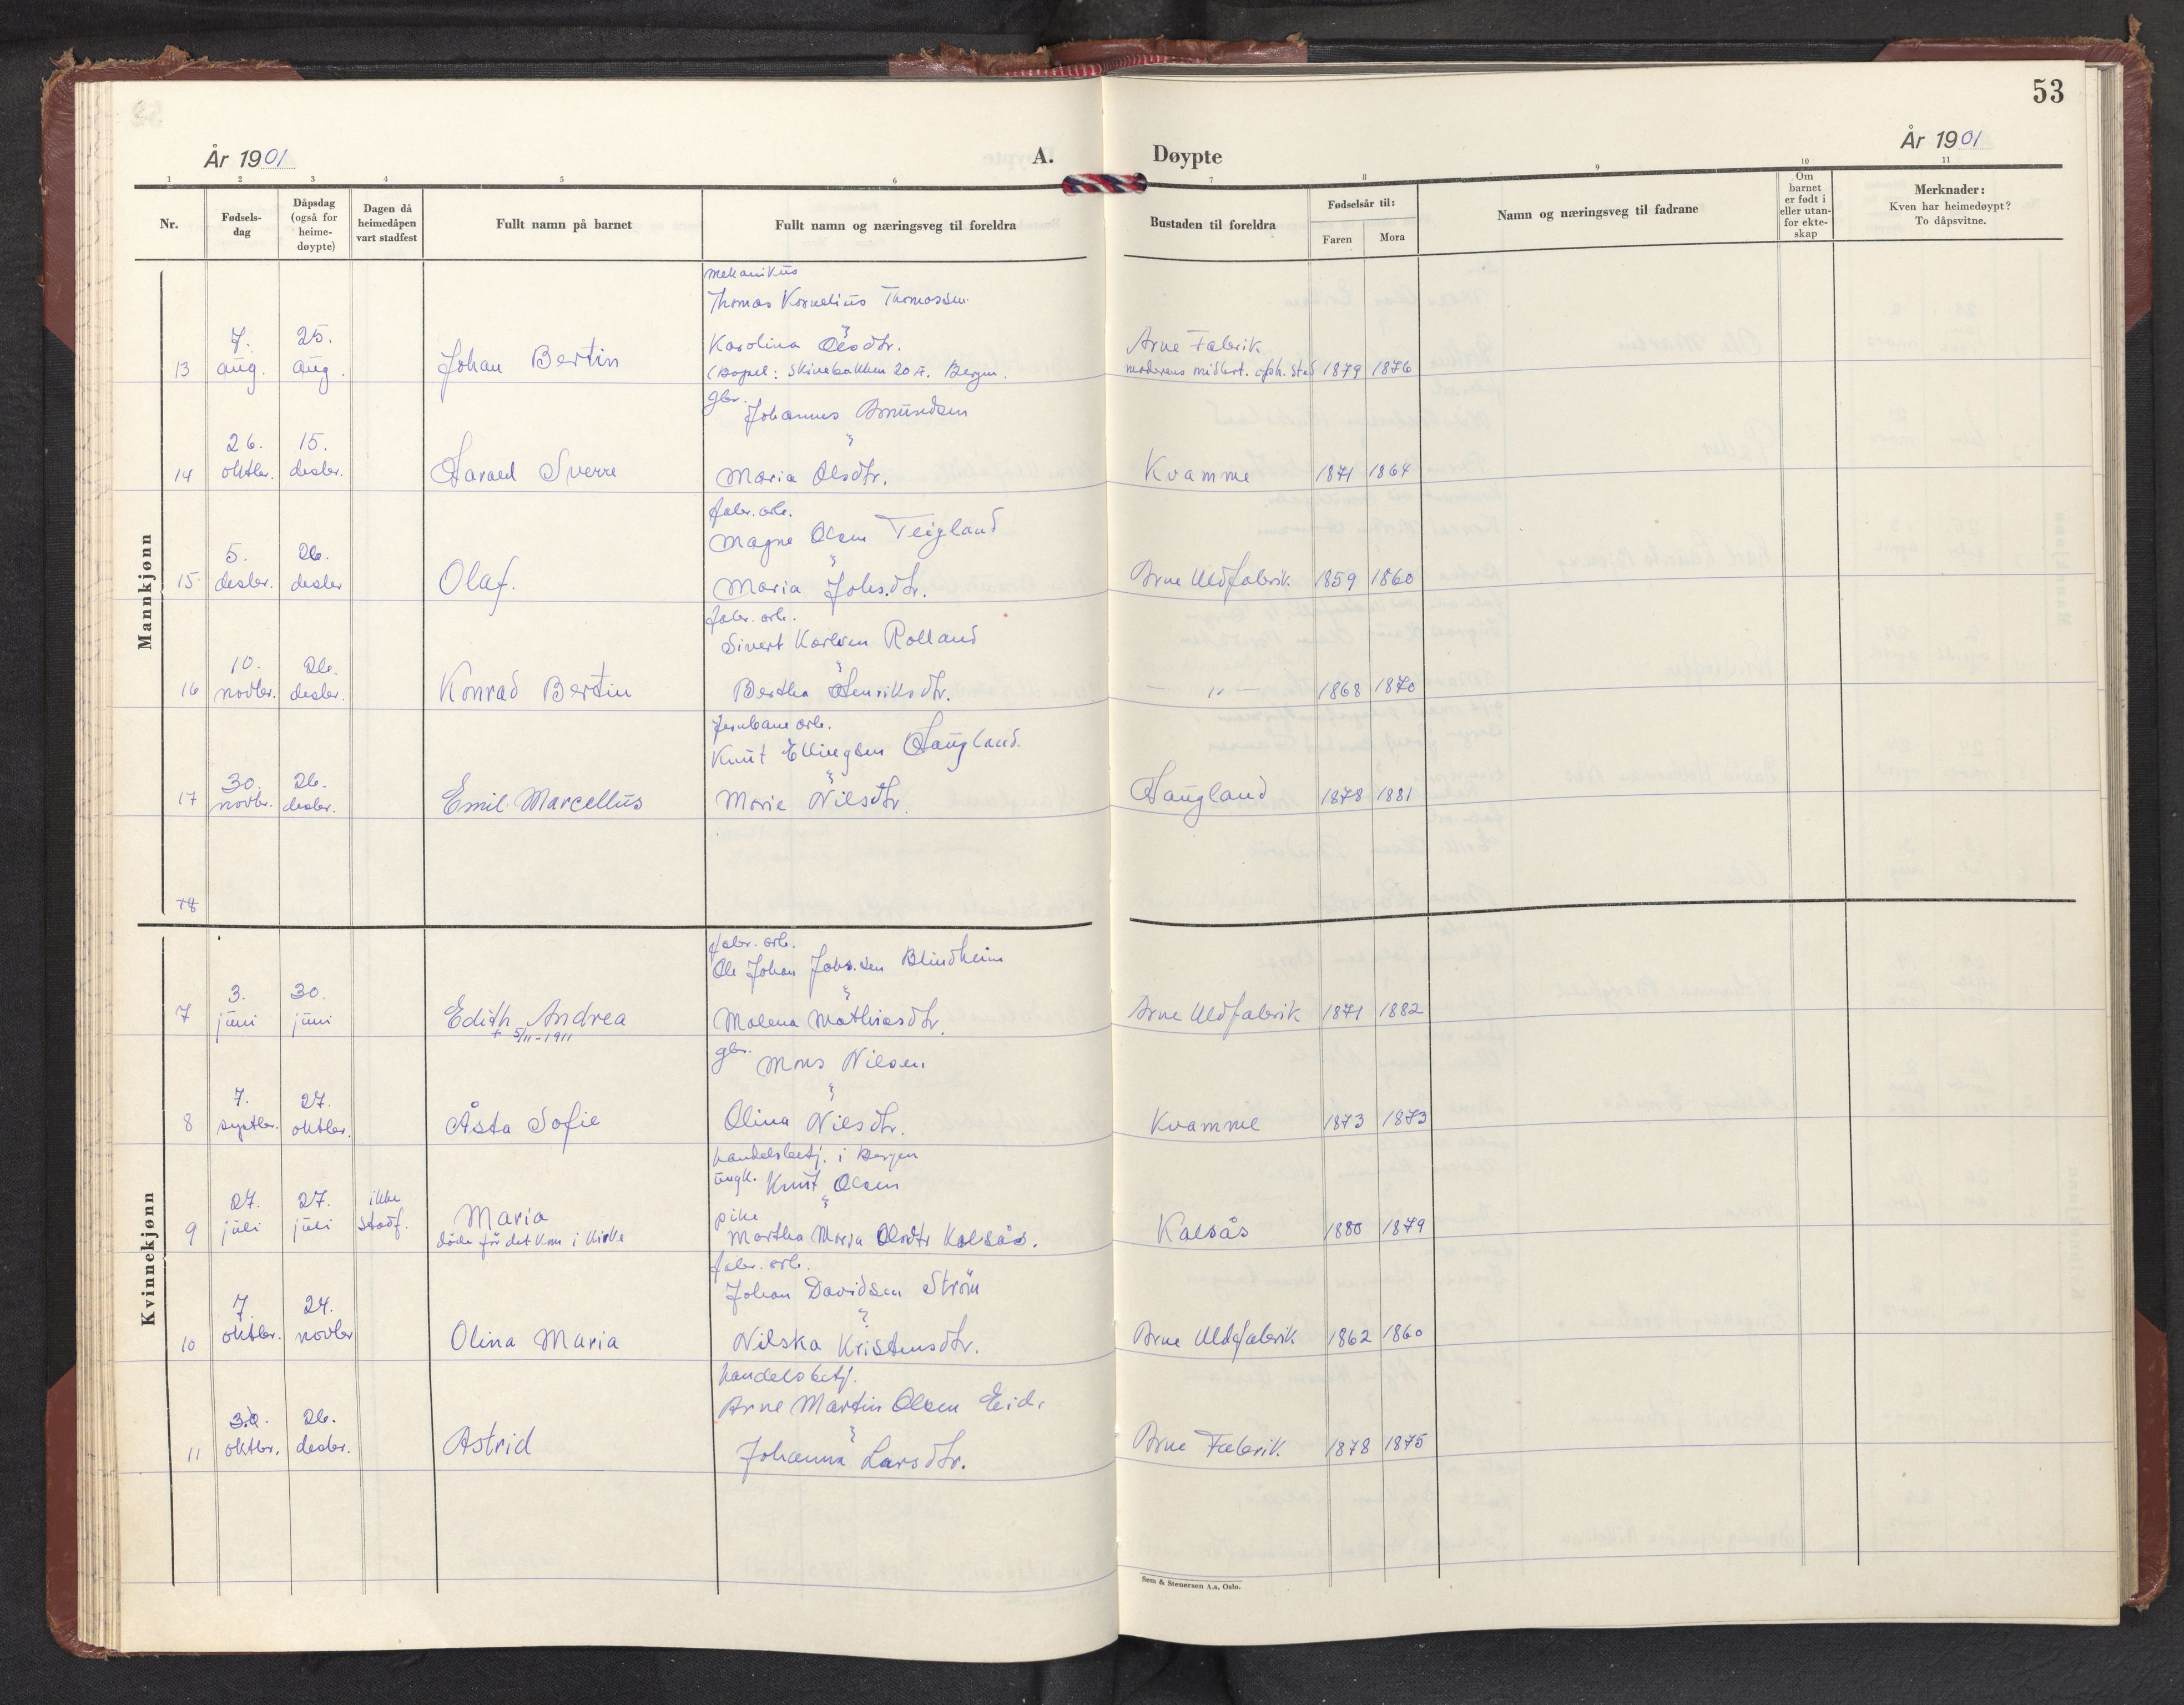 53
År 1901
A.
Døypte
År 1901
1 2 3 4 5 6 7 8 9 10 11
Nr.
Fødsels-
dag
Dåpsdag
(også for
heime-
døypte)
Dagen då
heimedåpen
vart stadfest
Fullt namn på barnet
Fullt namn og næringsveg til foreldra
Bustaden til foreldra
Fødselsår til:
Faren
Mora
Namn og næringsveg til fadrane
Om
barnet
er født i
eller utan-
for ekte-
skap
Merknader:
Kven har heimedøypt?
To dåpsvitne.
Mannkjønn
mekanikus
Thomas Kornelius Thomassen
7. 25. Karolina Olsdtr. Arne Fabrik
13 aug. aug. Johan Bertin (bopel: Skivebakken 20 Bergen. moderens midlert. oph. sted 1879 1876
gbr. Johannes Amundsen
26. 15.
14 oktbr. desbr. Harald Sverre Maria Olsdtr. Kvamme 1871 1864
fabr. arb.
Magne Olsen Teigland
5. 26.
15 desbr. desbr Olaf. Maria Johs.dtr. Arne Uldfabrik 1859 1860
fabr. arb.
Sivert Karlsen Rolland
10. 26.
16 novbr. desbr. Konrad Bertin Bertha Henriksdtr. — " — 1868 1870
Jernbane arb.
Knut Ellingsen Haugland.
30. 26.
17 novbr. desbr. Emil Marcellus Marie Nilsdtr. Haugland 1878 1881
18
Kvinnekjønn
fabr. arb.
Ole Johan Johs.sen Blindheim
3. 30.
7 juni juni Edith Andrea Malena Mathiasdtr. Arne Uldfabrik 1871 1882
+ 5/11-1911
gbr. Mons Nilsen
7. 27.
8 septbr. oktbr. Åsta Sofie Olina Nilsdtr. Kvamme 1873 1873
handelsbetj. i Bergen
ungk. Knut Olsen
27. 27. ikke pike
9 juli juli stadf. Maria Martha Maria Olsdtr Kalsås. Kalsås 1880 1879
døde før det kom i kirke
fabr. arb.
Johan Davidsen Strøm
7. 24.
10 oktbr. novbr Olina Maria Nilska Kristensdtr. Arne Uldfabrik 1862 1860
handelsbetj.
Arne Martin Olsen Eid.
30. 26.
11 oktbr. desbr. Astrid Johanna Larsdtr. Arne Fabrik 1878 1875
Sem & Stenersen A.s, Oslo.